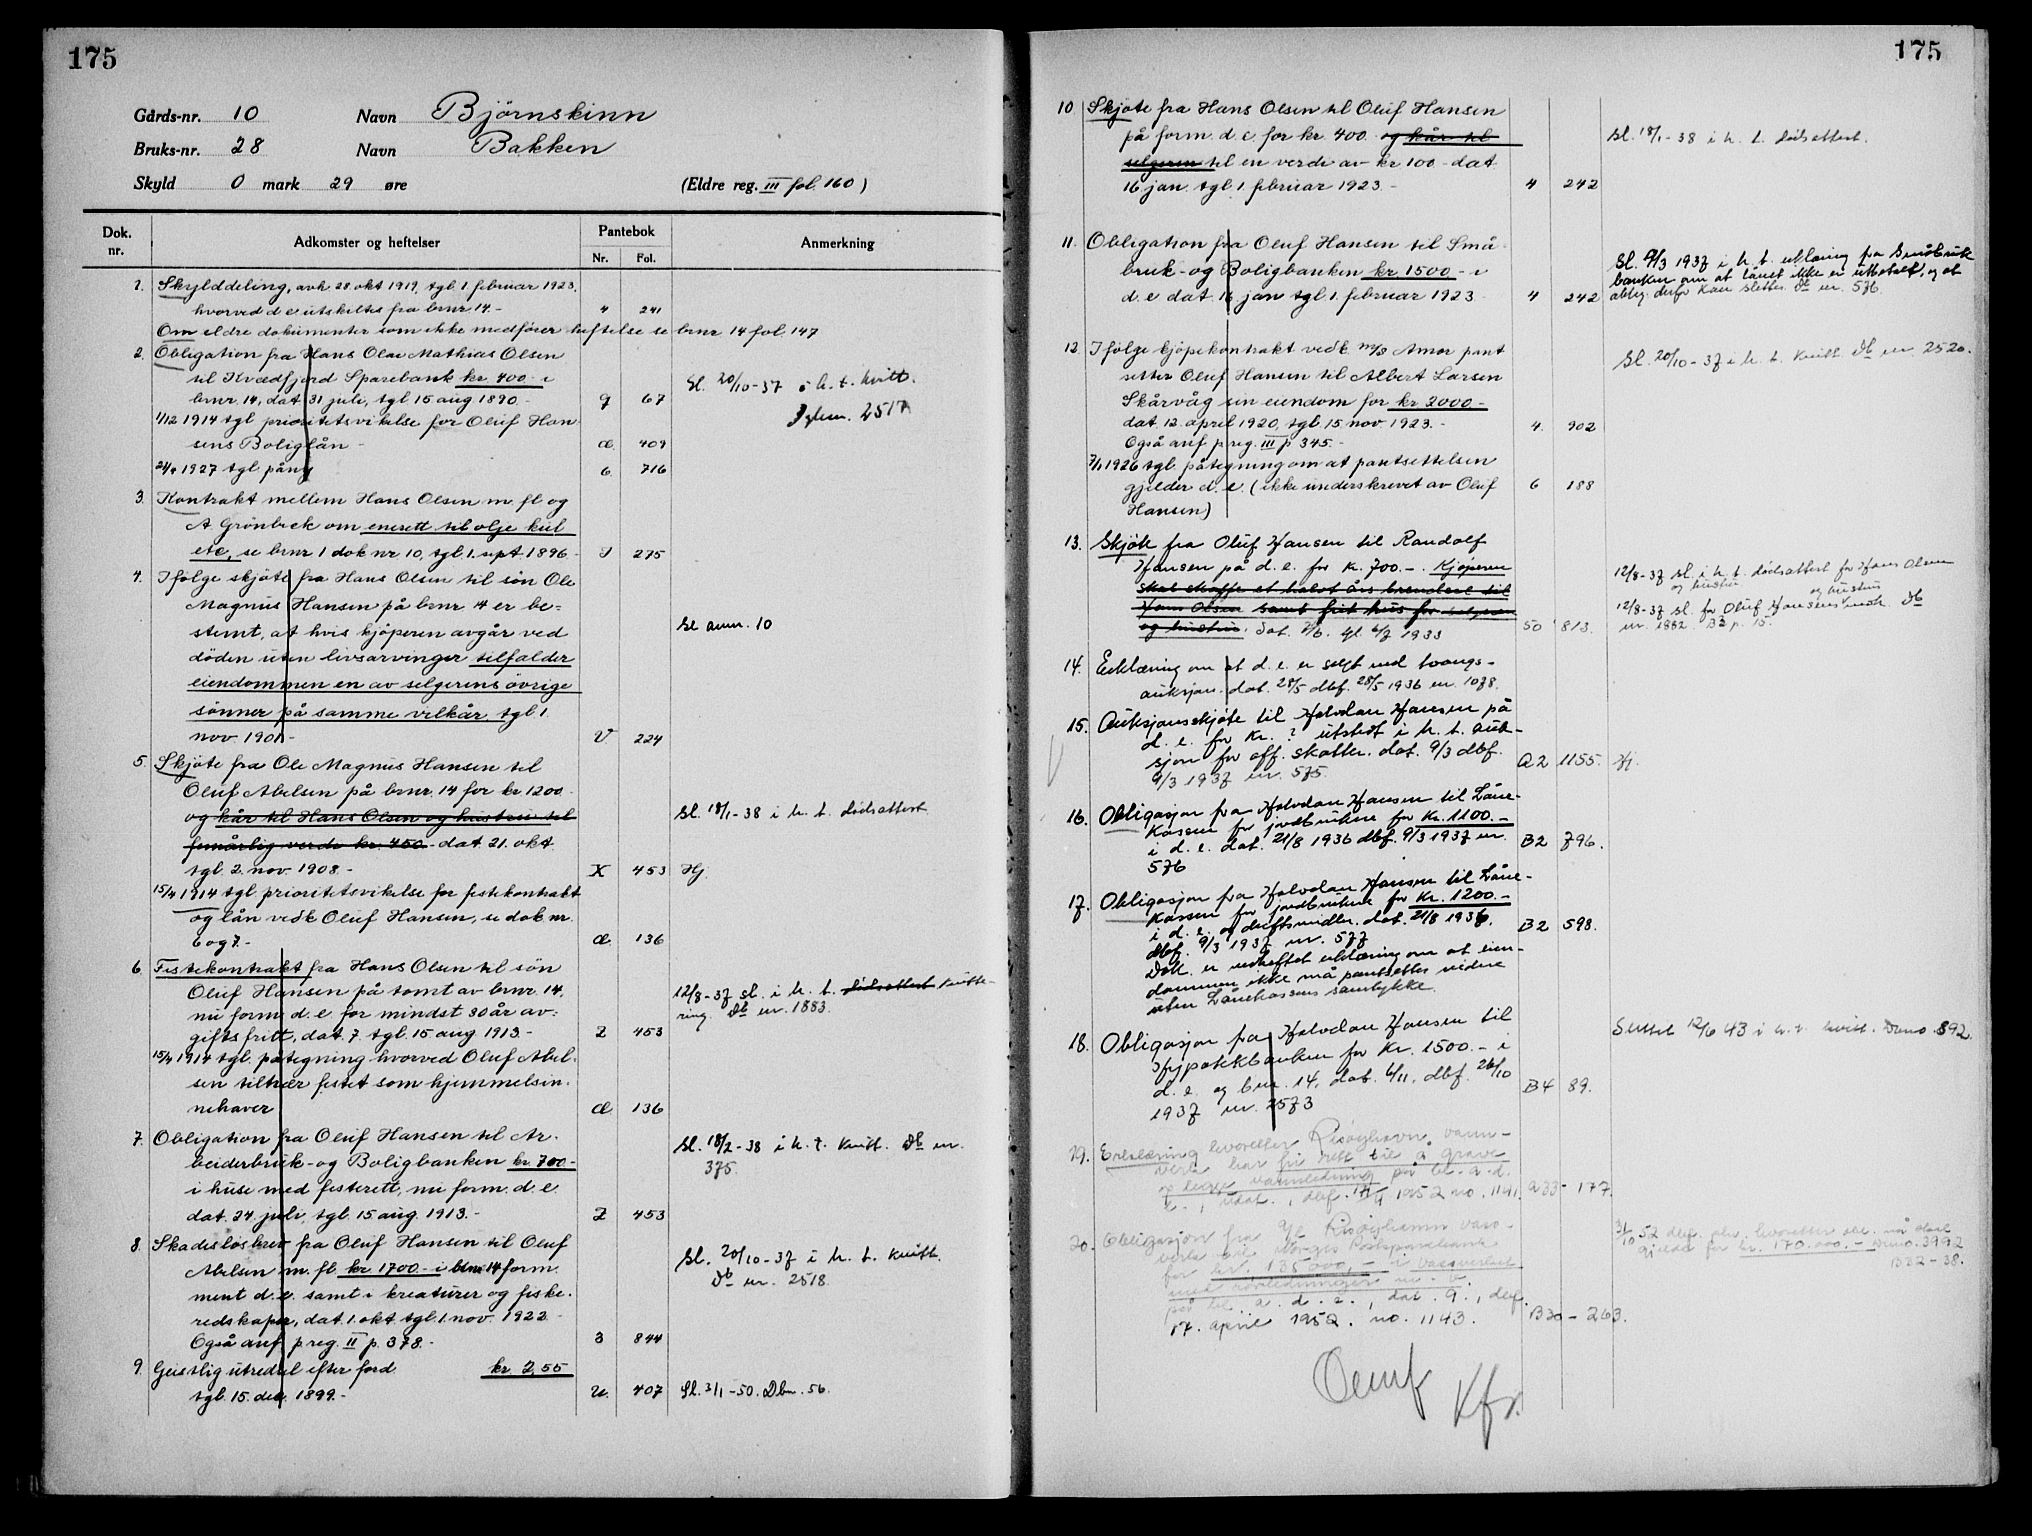 175
Gårds-nr. 10 Navn Björnskinn
Bruks-nr. 28 Navn Bakken
Skyld 0 mark 29 øre (Eldre reg. III fol. 160)
Dok. nr. Adkomster og heftelser Pantebok Nr. Fol. Anmerkning
1. Skylddeling, avh. 28 okt 1919, tgl. 1 februar 1923,
hvorved d e utskiltes fra brnr 14.- 4 241
Om eldre dokumenter som ikke medfører heftelse se brnr 14 fol. 147
2. Obligation fra Hans Olai Mathias Olsen
til Kvædfjord Sparebank kr. 400 - i Sl. 20/10-37 i h. t. kvitt.
brnr 14, dat 31 juli, tgl 15 aug 1890 - q 67 Dglnr. 2517
1/12 1914 tgl prioritetsvikelse for Oluf Han
sens Boliglån - æ. 409
21/4 1927 tgl. påny 6 716
3. Kontrakt mellem Hans Olsen m. fl og
A Grönbeck om enerett til olje kul
etc, se brnr 1 dok nr 10, tgl. 1. sept 1896 - 275
4. Ifölge skjöte fra Hans Olsen til sön Ole
Magnus Hansen på brnr 14 er be=
stemt, at hvis kjöperen avgår ved Sl anm. 10
döden uten livsarvinger tilfalder
eiendommen en av selgerens övrige
sönner på samme vilkår tgl 1.
nov. 1901 - V 224
5. Skjöte fra Ole Magnus Hansen til
Oluf Abelsen på brnr. 14 for kr 1200
og kår til Hans Olsen og hustru til Sl. 18/1-38 i h. t. dödsattest
femårlig verdi kr. 450 - dat 21. okt.
tgl. 2. nov 1908 - X 453 Hj.
15/4 1914 tgl prioritetsvikelse for festekontrakt
og lån vedk Oluf Hansen, se dok nr.
6 og 7.- æ. 136
6. Festekontrakt fra Hans Olsen til sön
Oluf Hansen på tomt av brnr 14, 12/8-37 sl. i h. t. dödsattest kvitte-
nu form d. e. for mindst 30 år av- ring. Db nr. 1883.
giftsfritt, dat. 7. tgl. 15 aug 1913.- Z 453
15/4 1914 tgl. påtegning hvorved Oluf Abel-
sen tiltrær festet som hjemmelsin-
nehaver æ 136
7. Obligation fra Oluf Hansen til Ar- Sl. 18/2-38 i h. t. kvitt. Db nr.
beiderbruk- og Boligbanken kr. 700 - 375.
i huse med festerett, nu form. d. e.
dat. 24. juli, tgl. 15. aug. 1913.- Z 453
8. Skadeslösbrev fra Oluf Hansen til Oluf Sl. 20/10-37 i h. t. kvitt.
Abelsen m. fl. kr. 1700 - i brnr 14 form. Db nr. 2518.
ment d. e. samt i kreaturer og fiske-
redskaper, dat. 1. okt tgl. 1. nov. 1922
Også anf. p reg. II p. 378.- 3 844
9. Geistlig utredsel efter ford. kr. 2,55
tgl. 15. des. 1899.- U. 407 Sl. 3/1-50. Dbnr. 56.
175
10 Skjöte fra Hans Olsen til Oluf Hansen
på form. d. e. for kr. 400 - og kår til Sl. 18/1-38 i h. t. dödsattest.
selgeren til en verdi av kr. 100 - dat.
16 jan. tgl. 1. februar 1923 - 4 242
11. Obligation fra Oluf Hansen til Små-
bruk- og Boligbanken kr 1500 - i Sl. 9/3 1937 i h. t. erklæring fra Småbruk
d. e. dat. 16 jan tgl. 1. februar 1923 4 242 banken om at lånet ikke er utbetalt, og at
oblig. derfor kan slettes. Db nr. 576.
12. Ifölge kjöpekontrakt vedk. Amor pant
setter Oluf Hansen til Albert Larsen Sl. 20/10-37 i h. t. kvitt. Db nr. 2520.
Skårvåg sin eiendom for kr 2000 -
dat. 12. april 1920, tgl. 15. nov. 1923.- 4. 902
Også anf. p reg. III p 345.-
7/1 1926 tgl. påtegning om at pantsettelsen
gjelder d. e. (ikke underskrevet av Oluf 6 188
Hansen)
13. Skjöte fra Oluf Hansen til Randolf
Hansen på d. e. for kr. 700.-. Kjöperen 12/8-37 sl. i h. t. dödsattest for Hans Olsen
skal skaffe et halvt års brendsel til og hustru
Hans Olsen samt fritt hus for selgeren 12/8-37 sl. for Oluf Hansens og hustru vedk. Db
og hustru. Dat. 7/6. tgl. 6/7 1933 50 813. nr. 1882. B3 p. 15.
14. Erklæring om at d. e. er solgt ved tvangs-
auksjon. dat. 28/5 dbf. 28/5 1936 nr. 1078.
15. Auksjonsskjöte til Halvdan Hansen på
d. e. for kr. ? utstedt i h. t. auk-
sjon for off. skatter. dat. 9/3 dbf. A2 1155. Hj.
9/3 1937 nr. 575.
16. Obligasjon fra Halvdan Hansen til Låne-
kassen for jordbrukere for kr. 1100.-
i d. e. dat. 21/8 1936 dbf. 9/3 1937 nr. B2 796.
576
17. Obligasjon fra Halvdan Hansen til Låne-
kassen for jordbrukere for kr. 1200.-
i d. e. og driftsmidler. dat. 21/8 1936, B2 598.
dbf. 9/3 1937 nr. 577
Dok. er vedheftet erklæring om at eien-
dommen ikke må pantsettes videre
uten Lånekassens samtykke.
18. Obligasjon fra Halvdan Hansen til Slettet 12/6 43 i h. t. kvitt. Dbno 892.
Hypotekbanken for kr. 1500.- i
d. e. og bnr. 14, dat. 6/11, dbf. 26/10 B4 89.
1937 nr. 2573
19. Erklæring hvoretter Risøyhavn vann-
verk har fri rett til å grave
og legge vannledning på bl. a. d.
e., udat., dbf. 17/4 1952 no. 1141. A33- 177.
20. Obligasjon fra Risøyhamn vass-
verk til Norges Postsparebank 31/10 52 dbf.
for kr. 135 000,- i vassverket gjelde for kr. 170.000.- Dbno. 3992
med rørledninger m. v. B32-38.
på bl. a. d. e., dat. 9., dbf.
17. april 1952. no. 1143. B30- 263.
Kfr.